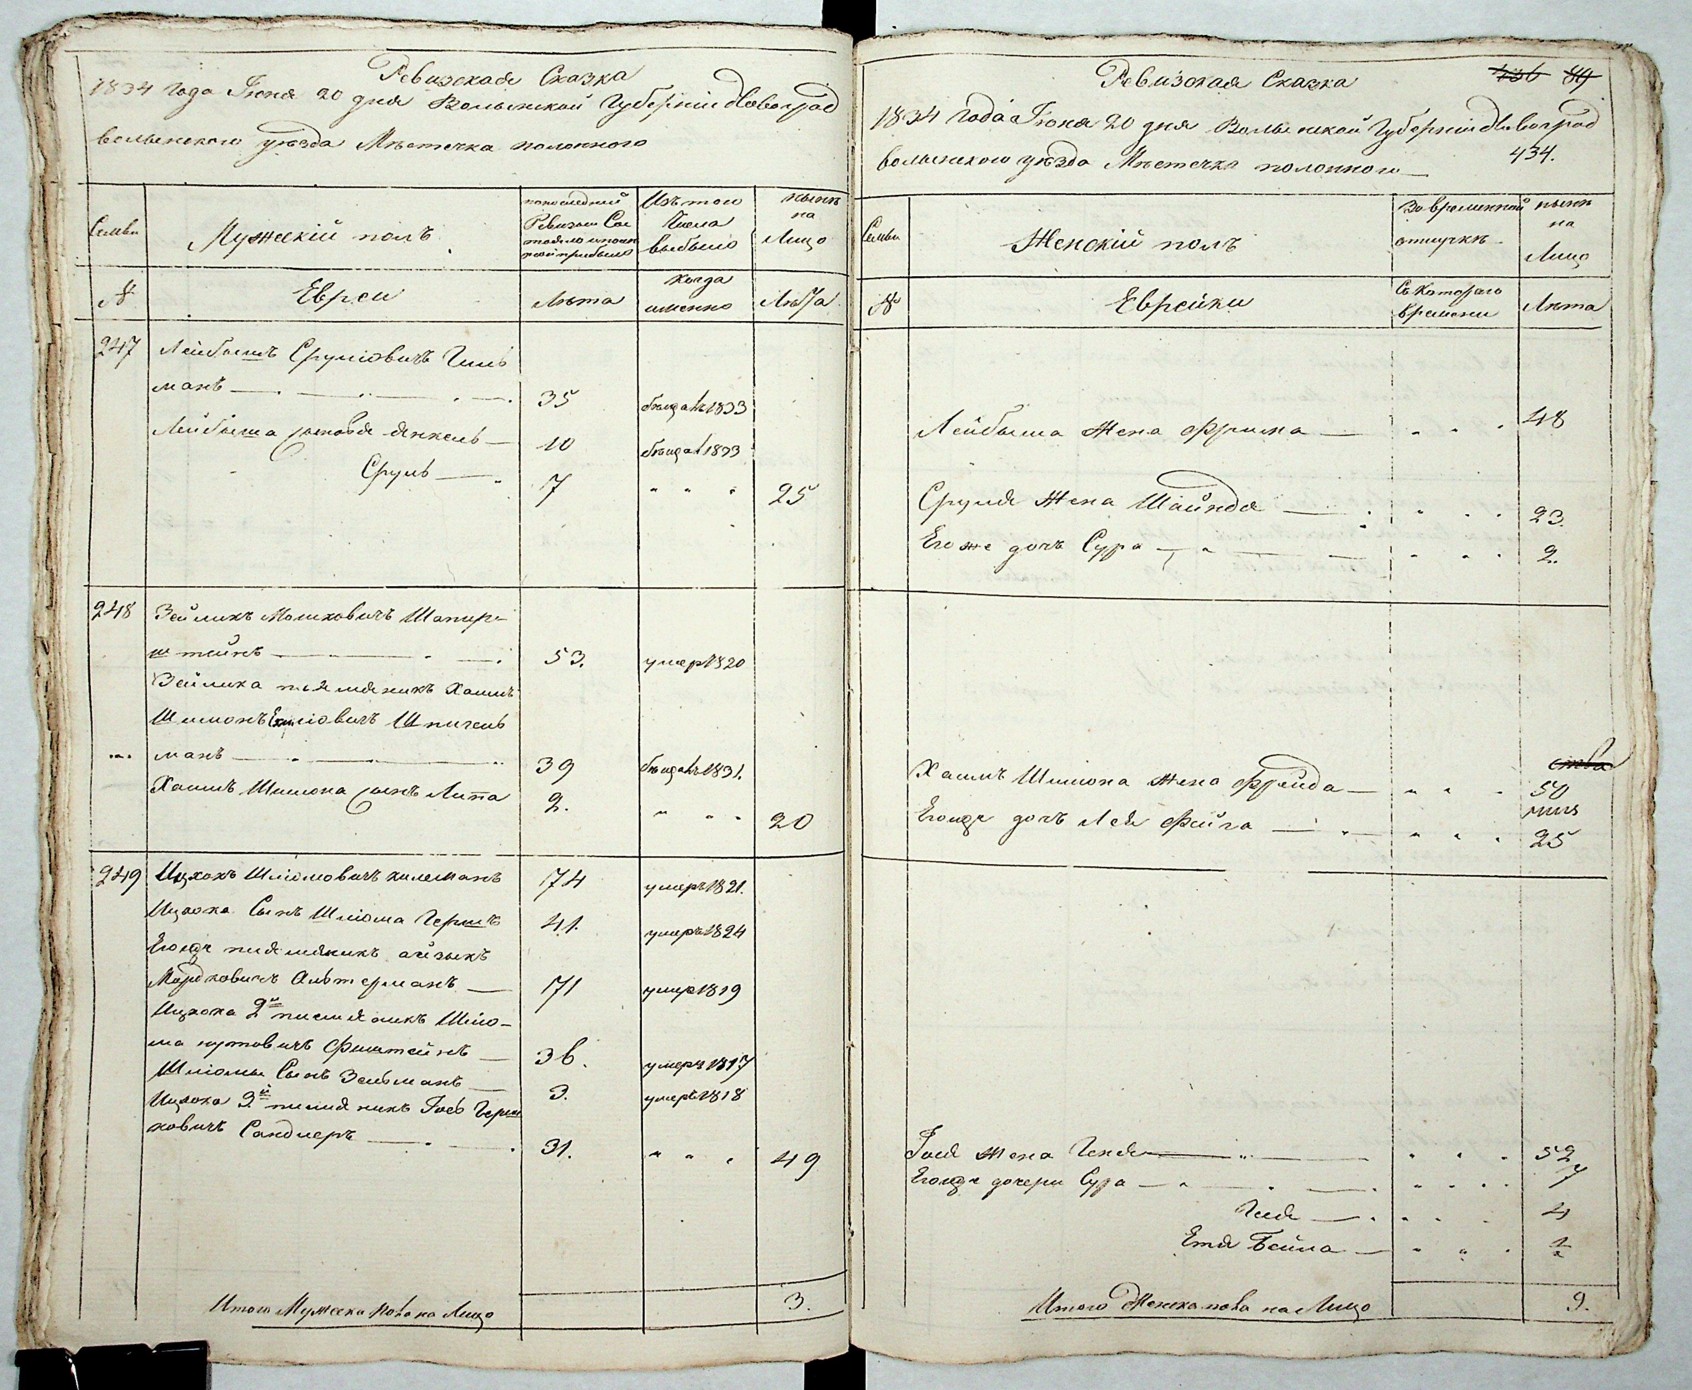 Ревизская Сказка
1834 года Июня 20 дня Волынской Губернии Новоград
волынского уезда Местечка полонного
Семьи
Мужеский полъ
по последней Ревизии Состояло и после той прибыло
Изъ того Числа выбыло
ныне на Лицо
№
Евреи
Лета
когда именно
Лета
247
Лейбышъ Сруліовичъ Гиль
манъ
35
1833
Лейбыша сыновья Янкель
10
1833
Сруль
7
25
248
Зейликъ Мошковичъ Шапир-
штейнъ
53.
умеръ 1820
Зейлика племяникъ Хаимъ
Шимонъ
манъ
39
1831.
Хаимъ Шимона сынъ Липа
2.
20
249
Ицхокъ Шліомовичъ
74
умеръ 1821.
Ицхока Сынъ Шліома Гершъ
41.
умеръ 1824
Егожъ племяникъ айзыкъ
Мордковичъ Альтерманъ
71
умеръ 1819
Ицхока 2й племяникъ Шліо-
ма
36.
умеръ 1817
Шліомы Сынъ Зельманъ
3.
умеръ 1818
Ицхока 3й племяникъ Іось Герш
ковичъ Сандлеръ
31.
49
Итого Мужеска пола на Лицо
3.
Ревизская Сказка
156 84
1834 года Июня 20 дня Волынской Губернии Новоград
434.
волынского уезда Местечка полонного
Семьи
Женский полъ
Во временной отлучке
ныне на Лицо
№
Еврейки
Съ которого времени
Лета
Лейбыша Жена Фрима
48
Сруля Жена Шайндя
23.
Его же дочь Сура
2.
Хаимъ Шимона жена Фрейда
50
Егожъ дочь Лея Фейга
25
Іося Жена Геня
52
Егожъ дочери Сура
7
4
Етя Бейла
½
Итого Женска пола на Лицо
9.